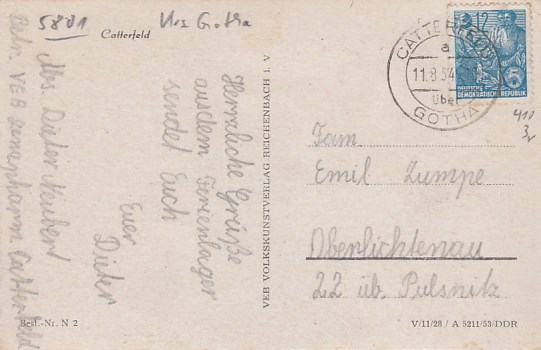 5801 Krs Gotha
Catterfeld
Abs. Dieter Neubert
Betr. VEB Catterfeld
Herrliche Grüße
aus dem Ferienlager
sendet Euch
Euer
Dieter
VEB VOLKSKUNSTVERLAG REICHENBACH I. V.
CATTERFELD
a
11.8.54
über
GOTHA
12
DEUTSCHE
DEMOKRATISCHE REPUBLIK
5
Fam
Emil Zumpe
Oberlichtenau
22 üb. Pulsnitz
Best.-Nr. N 2
V/11/28 / A 5211/53/DDR